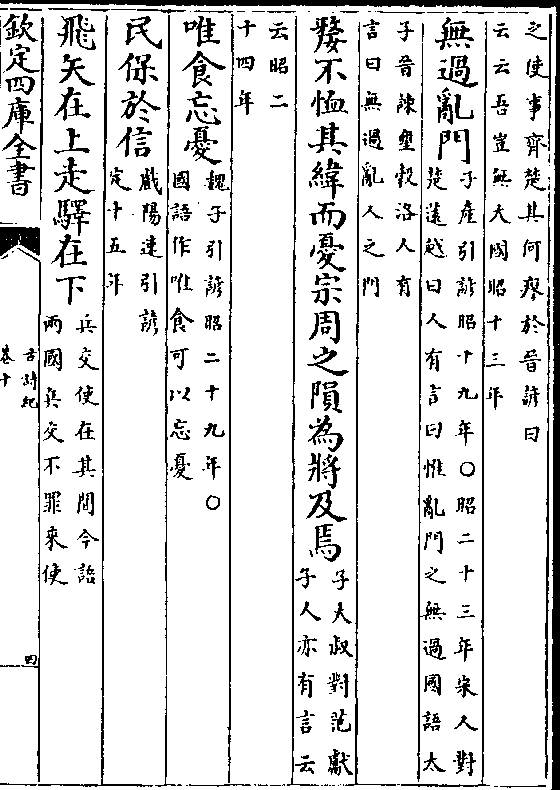 之使事齊楚其何瘳於晉諺曰
云云吾豈無大國昭十三年
無過亂門
子產引諺昭十九年○昭二十三年宋人對
楚薳越曰人有言曰惟亂門之無過國語太
子晉諫壅穀洛人有
言曰無過亂人之門
嫠不恤其緯而憂宗周之隕為將及焉
子大叔對范獻
子人亦有言云
云昭二
十四年
唯食忘憂
魏子引諺昭二十九年○
國語作唯食可以忘憂
民保於信
戲陽速引諺
定十五年
飛矢在上走驛在下
兵交使在其間今語
兩國兵交不罪來使
欽定四庫全書
古詩紀
卷十
四